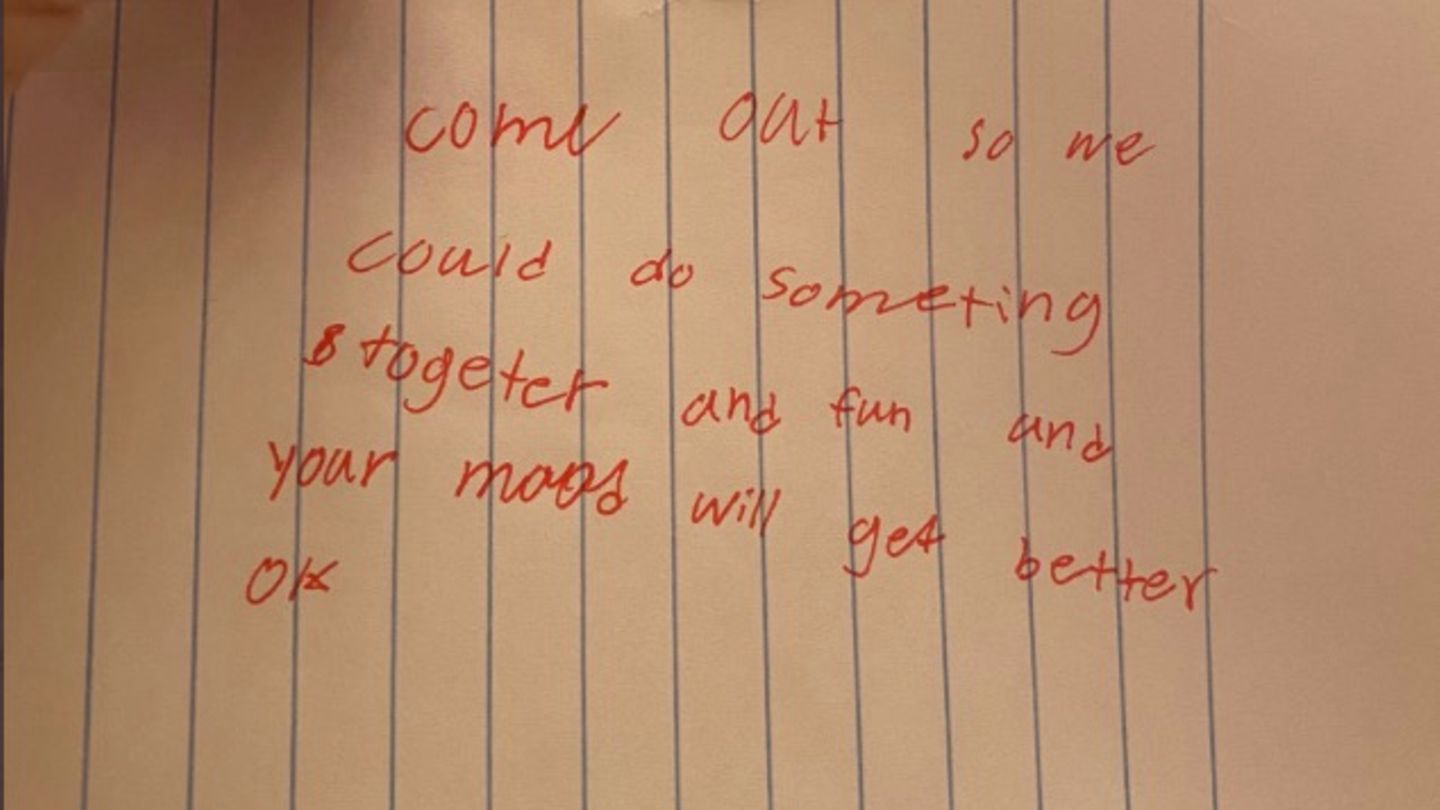 come out so we
could do someting
togeter and fun and
your mood will get better
OK